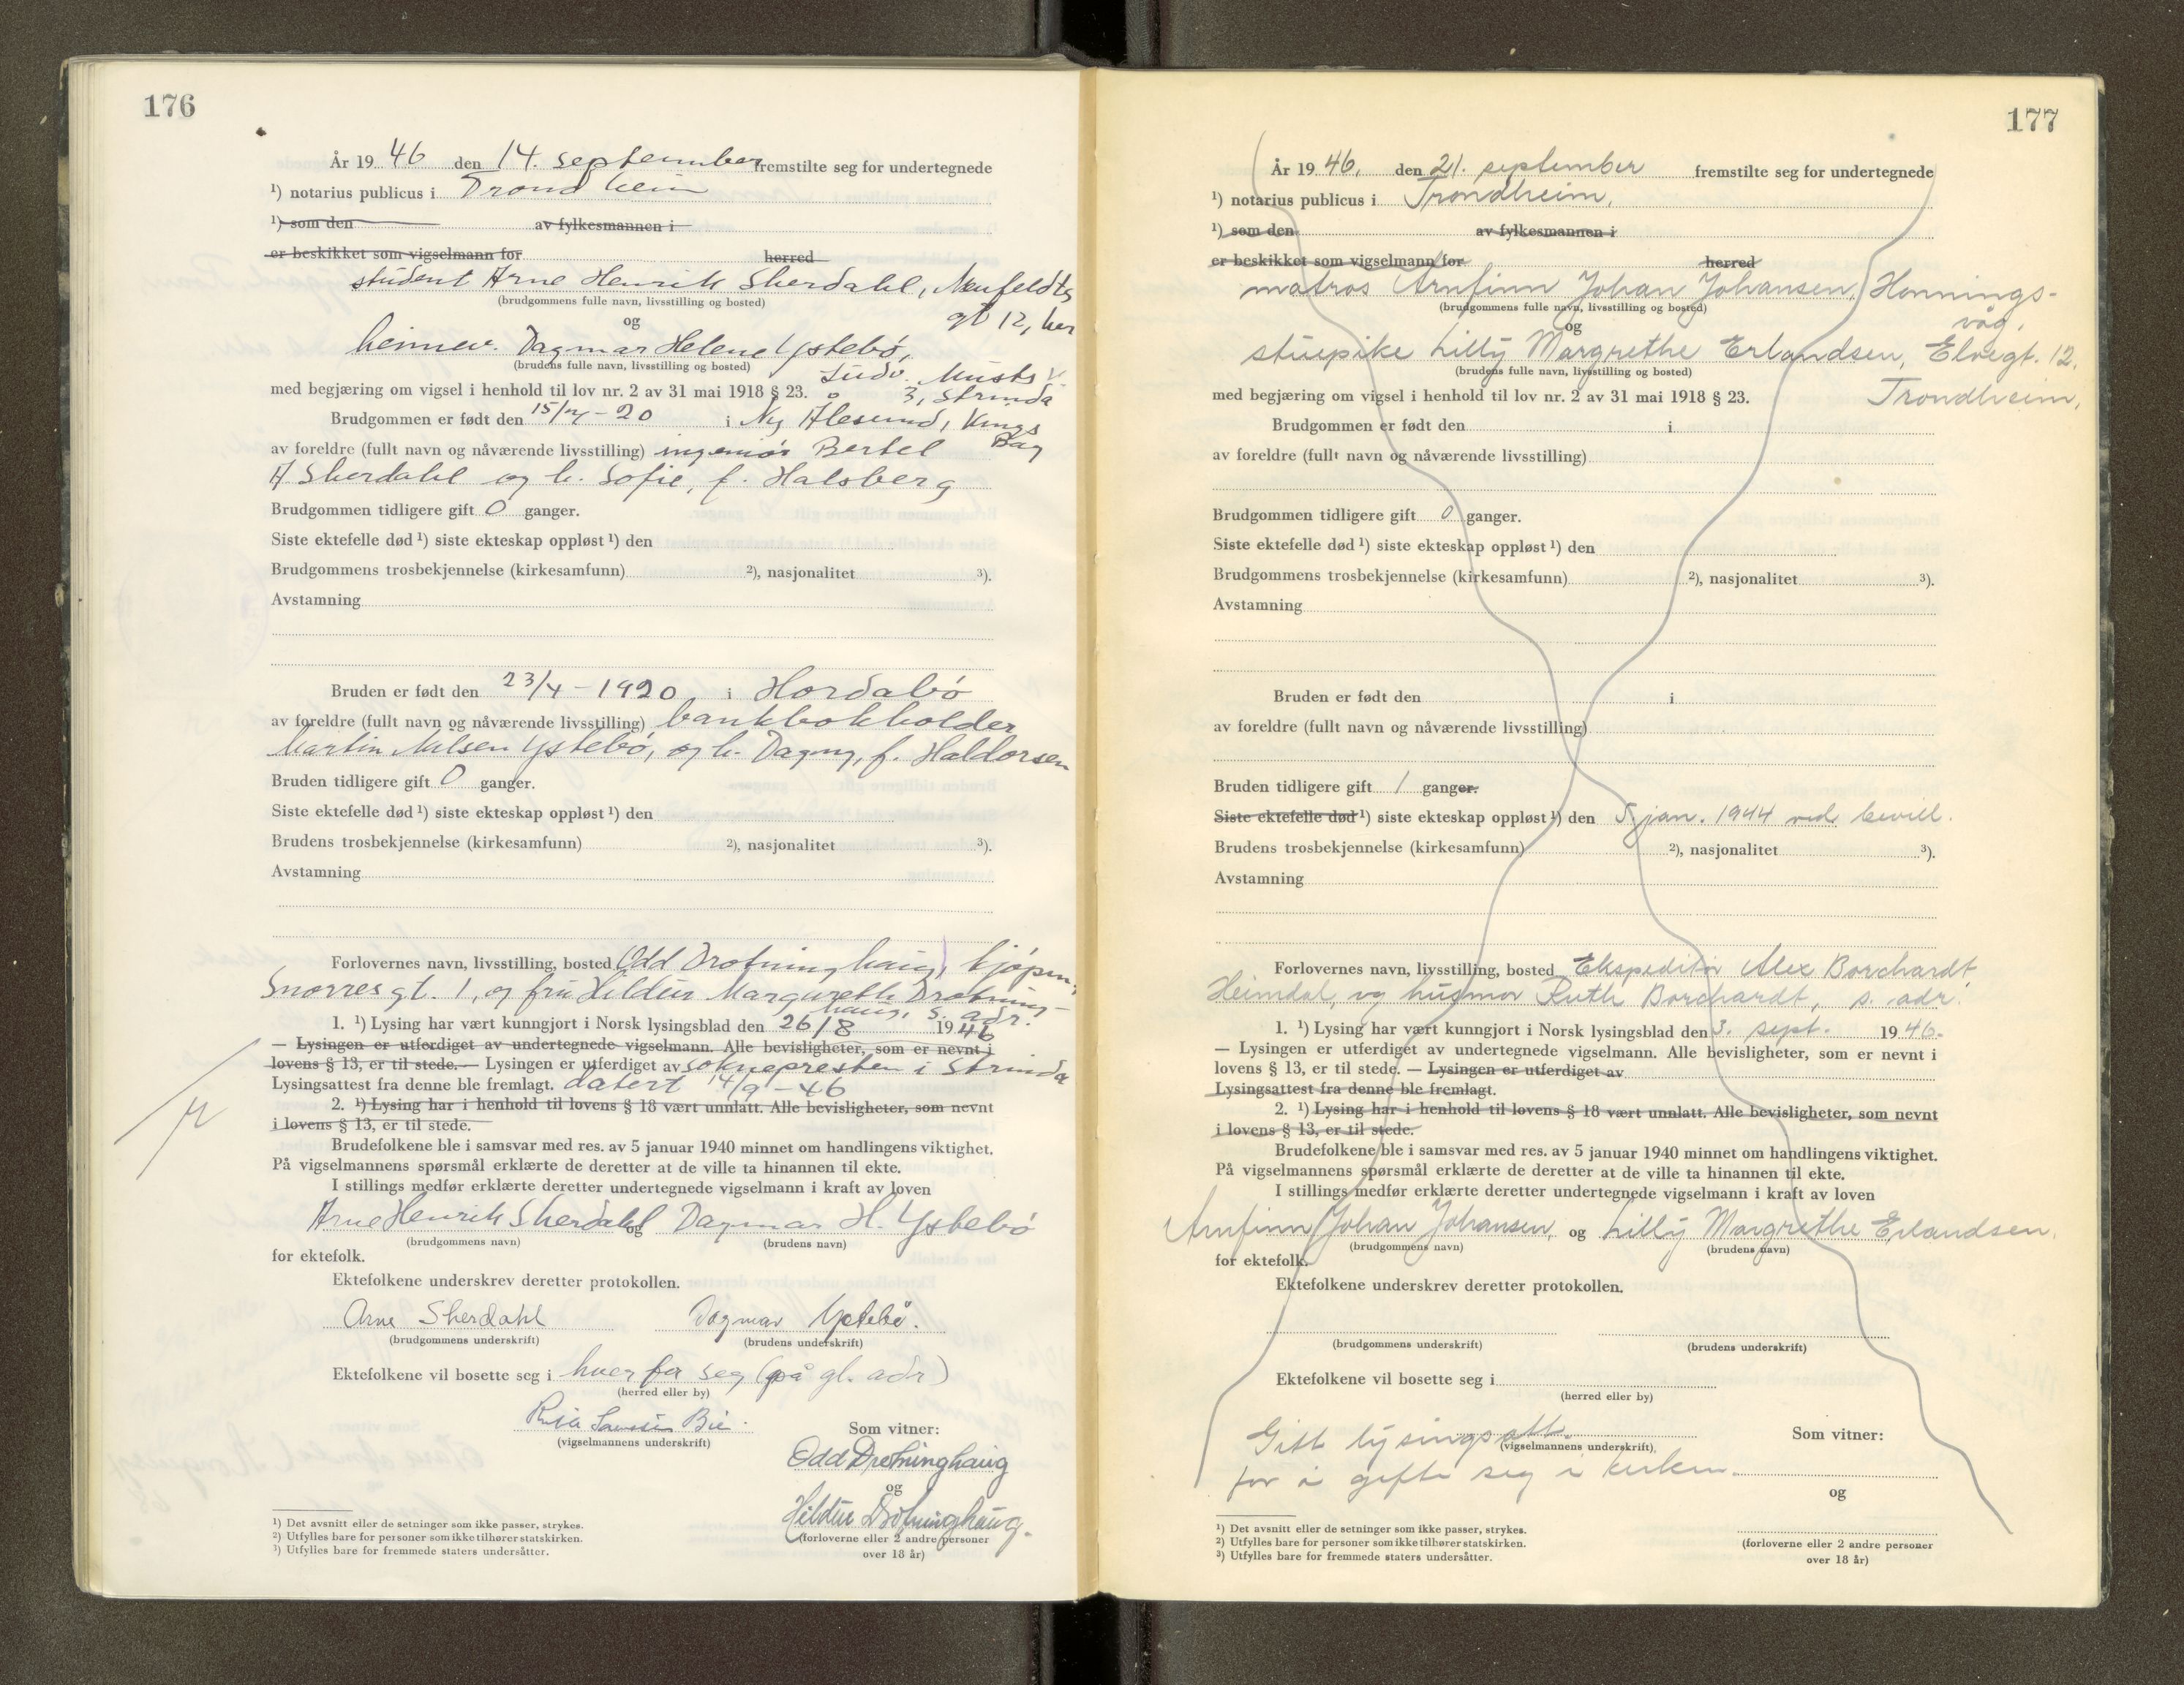 176
År 19 46 den 14. september fremstilte seg for undertegnede
¹) notarius publicus i Trondheim
¹) som den av fylkesmannen i
er beskikket som vigselmann for herred
student Arne Henrik Sherdahl, Neufeldts
(brudgommens fulle navn, livsstilling og bosted)
gt 12, her
og
heimev. Dagmar Helene Ystebø,
(brudens fulle navn, livsstilling og bosted)
Ludv. Musts v.
med begjæring om vigsel i henhold til lov nr. 2 av 31 mai 1918 § 23. 3, Strinda
Brudgommen er født den 15/4 - 20 i Ny Ålesund, Kings
Bay
av foreldre (fullt navn og nåværende livsstilling) ingeniør Bertel
A Sherdahl og h. Sofie, f. Halsberg
Brudgommen tidligere gift 0 ganger.
Siste ektefelle død ¹) siste ekteskap oppløst ¹) den
Brudgommens trosbekjennelse (kirkesamfunn) ²), nasjonalitet ³).
Avstamning
Bruden er født den 23/4 - 1920 i Hordabø
av foreldre (fullt navn og nåværende livsstilling) bankbokholder
Martin Nilsen Ystebø, og h. Dagny, f. Haldorsen
Bruden tidligere gift 0 ganger.
Siste ektefelle død ¹) siste ekteskap oppløst ¹) den
Brudens trosbekjennelse (kirkesamfunn) ²), nasjonalitet ³).
Avstamning
Forlovernes navn, livsstilling, bosted Odd Drotninghaug, kjøpm.,
Snorres gt. 1, og fru Hildur Margareth Drotning-
haug, s. adr.
1. ¹) Lysing har vært kunngjort i Norsk lysingsblad den 26/8 1946
— Lysingen er utferdiget av undertegnede vigselmann. Alle bevisligheter, som er nevnt i
lovens § 13, er til stede. — Lysingen er utferdiget av soknepresten i Strinda
Lysingsattest fra denne ble fremlagt. datert 14/9 - 46
2. ¹) Lysing har i henhold til lovens § 18 vært unnlatt. Alle bevisligheter, som nevnt
i lovens § 13, er til stede.
Brudefolkene ble i samsvar med res. av 5 januar 1940 minnet om handlingens viktighet.
På vigselmannens spørsmål erklærte de deretter at de ville ta hinannen til ekte.
I stillings medfør erklærte deretter undertegnede vigselmann i kraft av loven
Arne Henrik Sherdahl og Dagmar H. Ystebø
(brudgommens navn) (brudens navn)
for ektefolk.
Ektefolkene underskrev deretter protokollen.
Arne Sherdahl Dagmar Ystebø.
(brudgommens underskrift) (brudens underskrift)
Ektefolkene vil bosette seg i hver for seg (på gl. adr)
(herred eller by)
(vigselmannens underskrift)
Som vitner:
Odd Drotninghaug
og
Hildur Drotninghaug.
(forloverne eller 2 andre personer
over 18 år)
¹) Det avsnitt eller de setninger som ikke passer, strykes.
²) Utfylles bare for personer som ikke tilhører statskirken.
³) Utfylles bare for fremmede staters undersåtter.
177
År 19 46, den 21. september fremstilte seg for undertegnede
¹) notarius publicus i Trondheim,
¹) som den av fylkesmannen i
er beskikket som vigselmann for herred
matros Arnfinn Johan Johansen, Honnings-
(brudgommens fulle navn, livsstilling og bosted)
våg,
og
stuepike Lilly Margrethe Erlandsen, Elvegt. 12,
(brudens fulle navn, livsstilling og bosted)
med begjæring om vigsel i henhold til lov nr. 2 av 31 mai 1918 § 23. Trondheim,
Brudgommen er født den i
av foreldre (fullt navn og nåværende livsstilling)
Brudgommen tidligere gift 0 ganger.
Siste ektefelle død ¹) siste ekteskap oppløst ¹) den
Brudgommens trosbekjennelse (kirkesamfunn) ²), nasjonalitet ³).
Avstamning
Bruden er født den i
av foreldre (fullt navn og nåværende livsstilling)
Bruden tidligere gift 1 ganger.
Siste ektefelle død ¹) siste ekteskap oppløst ¹) den 5 jan. 1944 ved bevill.
Brudens trosbekjennelse (kirkesamfunn) ²), nasjonalitet ³).
Avstamning
Forlovernes navn, livsstilling, bosted Ekspeditør Alex Borchardt
Heimdal, og husmor Ruth Borchardt, s. adr.
1. ¹) Lysing har vært kunngjort i Norsk lysingsblad den 3. sept. 1946.
— Lysingen er utferdiget av undertegnede vigselmann. Alle bevisligheter, som er nevnt i
lovens § 13, er til stede. — Lysingen er utferdiget av
Lysingsattest fra denne ble fremlagt.
2. ¹) Lysing har i henhold til lovens § 18 vært unnlatt. Alle bevisligheter, som nevnt
i lovens § 13, er til stede.
Brudefolkene ble i samsvar med res. av 5 januar 1940 minnet om handlingens viktighet.
På vigselmannens spørsmål erklærte de deretter at de ville ta hinannen til ekte.
I stillings medfør erklærte deretter undertegnede vigselmann i kraft av loven
Arnfinn Johan Johansen, og Lilly Margrethe Erlandsen.
(brudgommens navn) (brudens navn)
for ektefolk.
Ektefolkene underskrev deretter protokollen.
(brudgommens underskrift) (brudens underskrift)
Ektefolkene vil bosette seg i
(herred eller by)
Gitt lysingsatt.
(vigselmannens underskrift)
for å gifte seg i kirken.
Som vitner:
og
(forloverne eller 2 andre personer
over 18 år)
¹) Det avsnitt eller de setninger som ikke passer, strykes.
²) Utfylles bare for personer som ikke tilhører statskirken.
³) Utfylles bare for fremmede staters undersåtter.